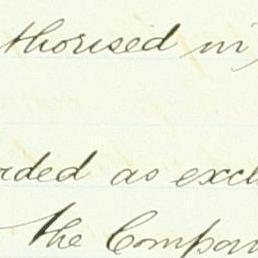 thorised in
rded as excl
the Compan